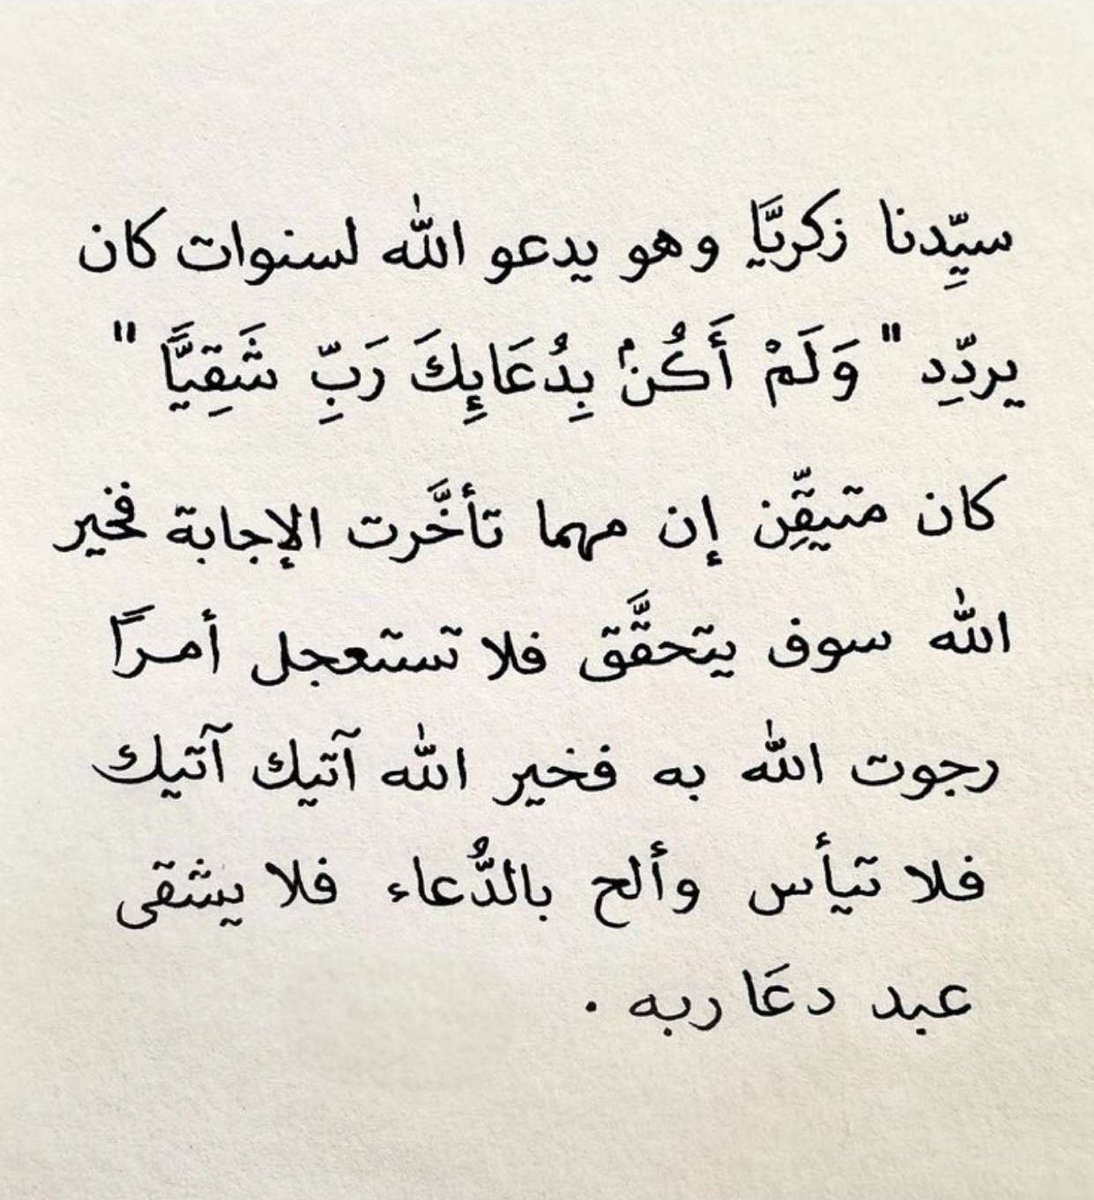 سيِّدنا زكريَّا وهو يدعو الله لسنوات كان
يردّدِ " وَلَمْ أَكُنْ بِدُعَايِٕكَ رَبِّ شَقِيًّا "
كان متيقّنِ إن مهما تأخَّرت الإجابة فخير
الله سوف يتحقَّق فلا تستعجل أمرًا
رجوت الله به فخير الله آتيك آتيك
فلا تيأس وألح بالدُّعاء فلا يشقى
عبد دعَا ربه .